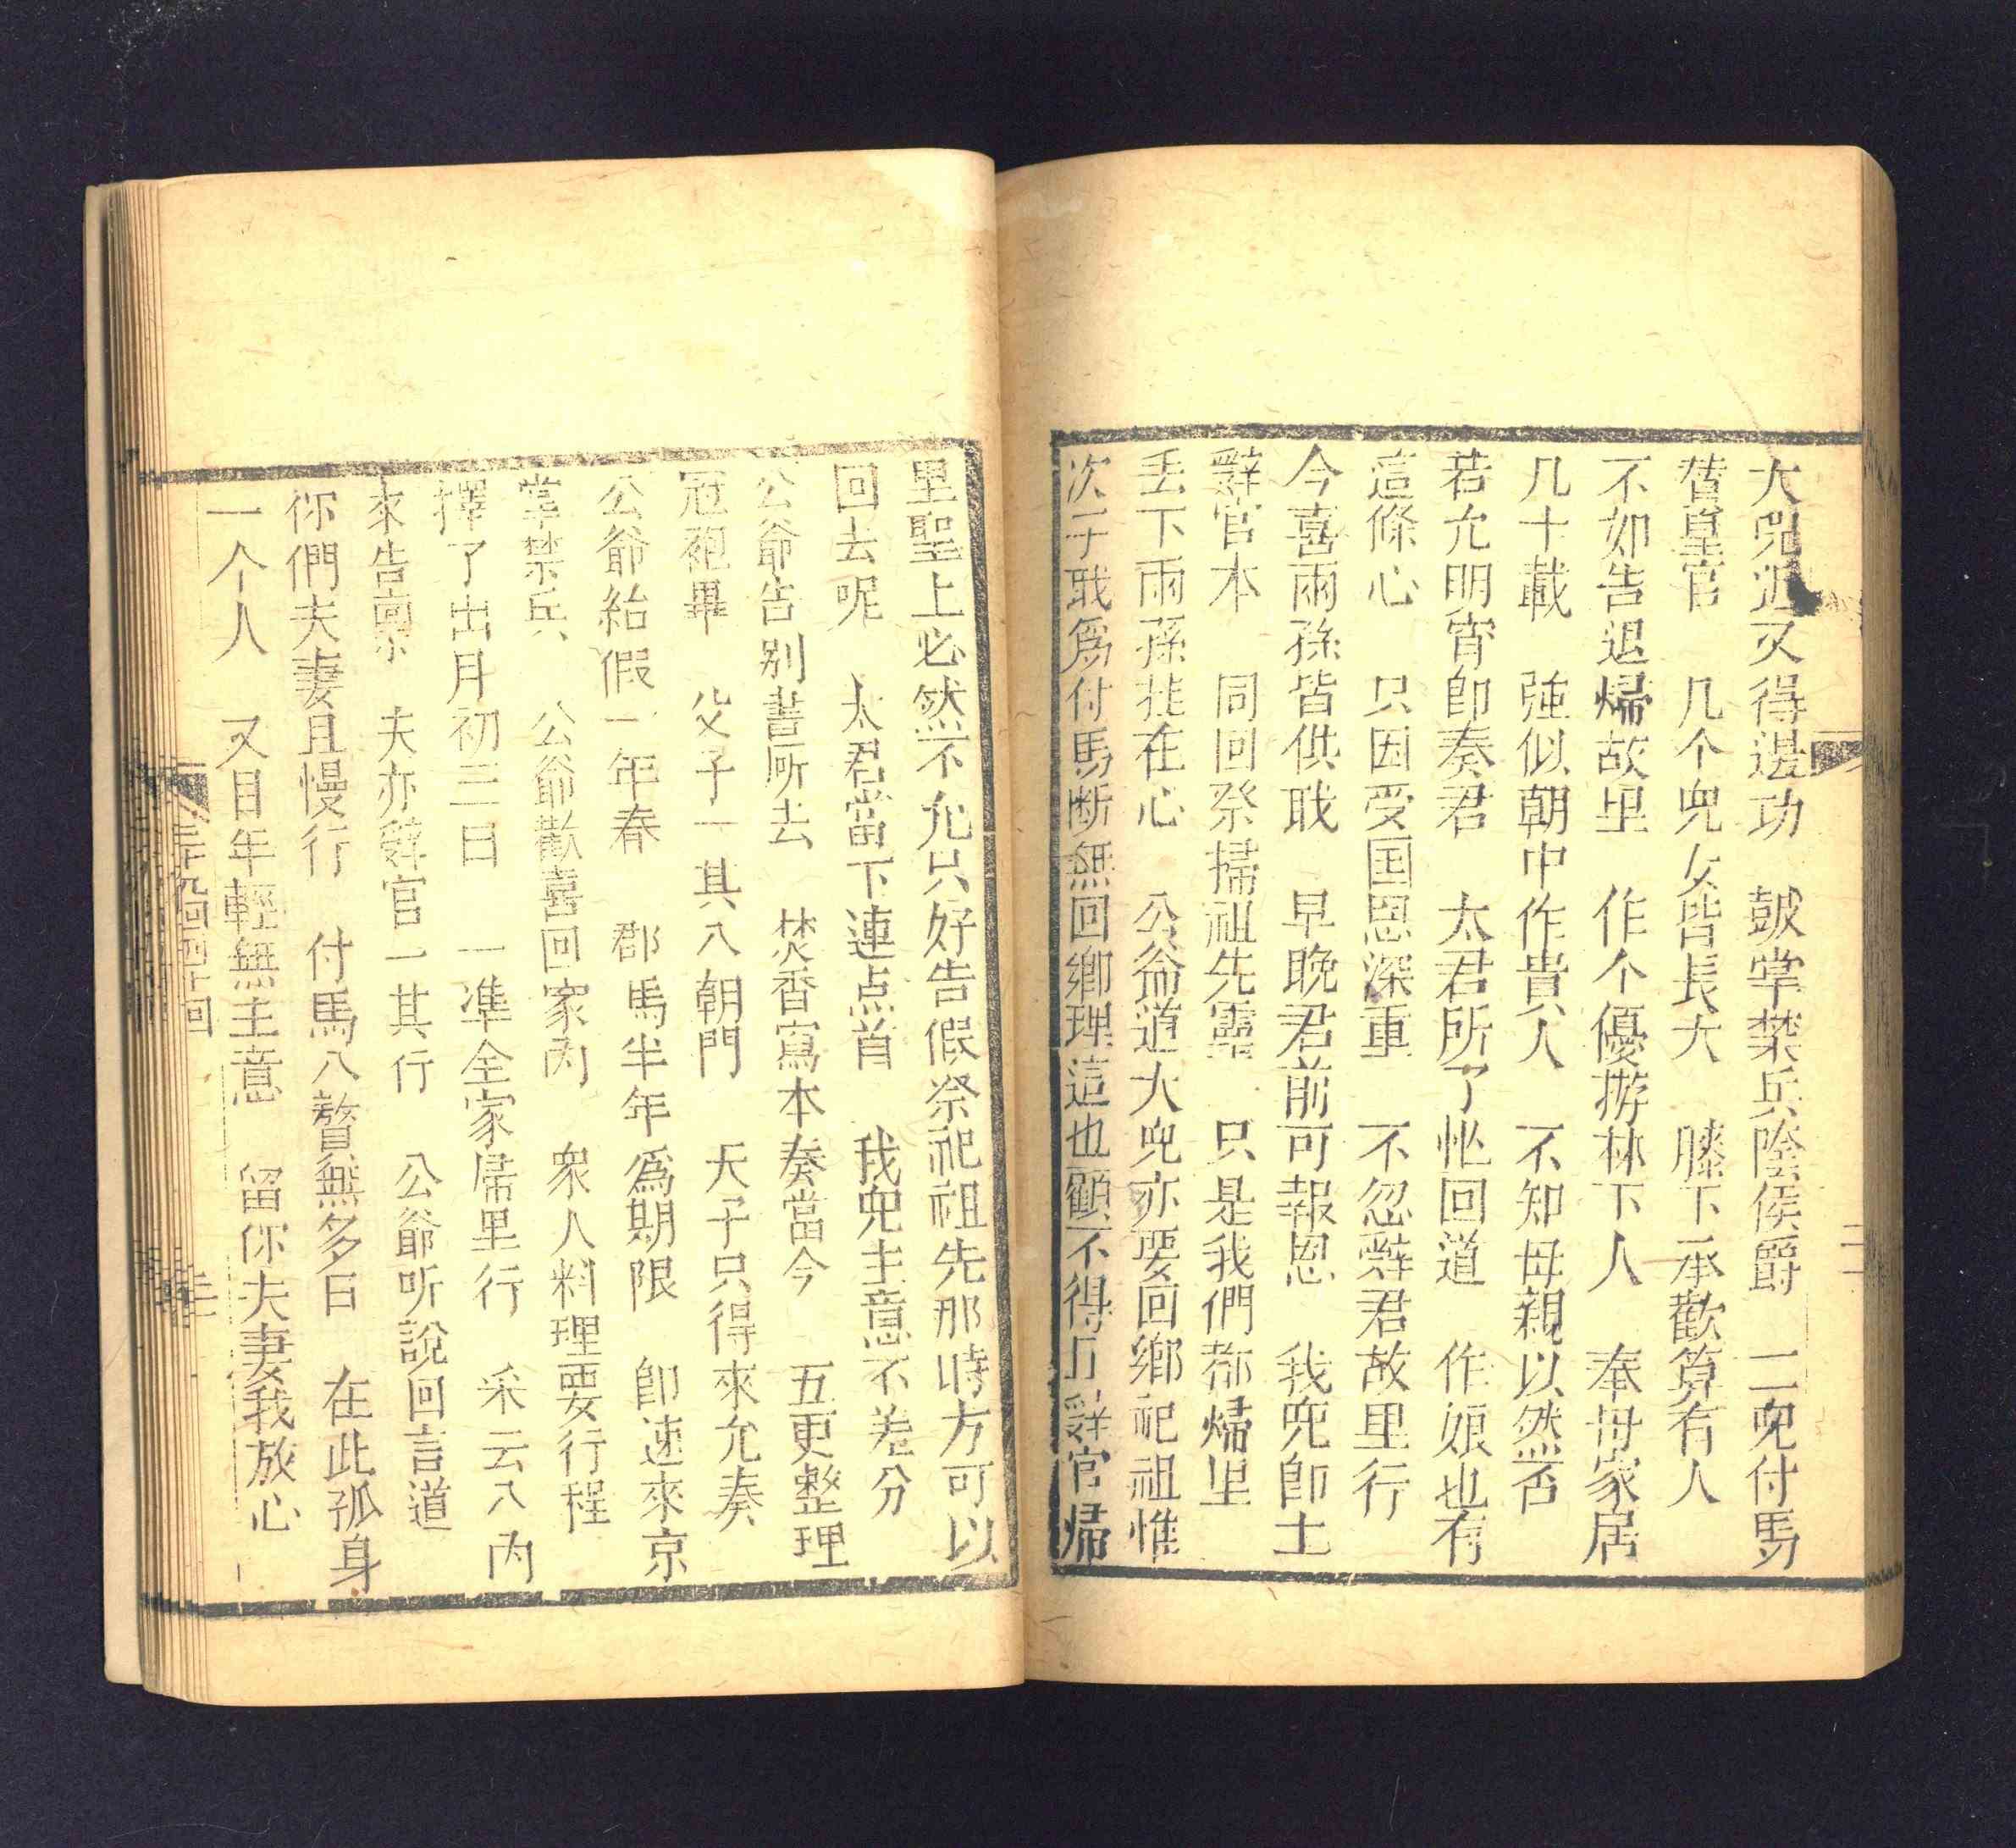 大児近又得邊功　皷掌禁兵陰侯爵　二児付馬
替皇官　几个児女皆長大　膝下承歡算有人
不如告退歸故里　作个優游林下人　奉母家居
几十載　強似朝中作貴人　不知母親以然否
若允明宵即奏君　太君所了忙回道　作娘也有
這條心　只因受国恩深重　不忍辭君故里行
今喜雨孫皆供戝　早晚君前可報恩　我児即土
辭官本　同回祭掃祖先靈　只是我們都歸里
丢下雨孫挂在心　公爺道大児亦要回鄉祀祖惟
次子戝爲付馬断無回鄉理這也顧不得了辭官歸
里聖上必然不允只好告假祭祀祖先那時方可以
回去呢　太君當下連点首　我児主意不差分
公爺告别書所去　焚香寫本奏當今　五更整理
冠袍畢　父子一其八朝門　天子只得來允奏
公爺給假一年春　郡馬半年爲期限　即速來京
掌禁兵　公爺歡喜回家内　衆人料理要行程
擇了出月初三日　一凖全家歸里行　采云八内
來告禀　夫亦辭官一其行　公爺听說回言道
你們夫妻且慢行　付馬八贅無多日　在此孤身
一个人　又目年輕無主意　留你夫妻我放心
回